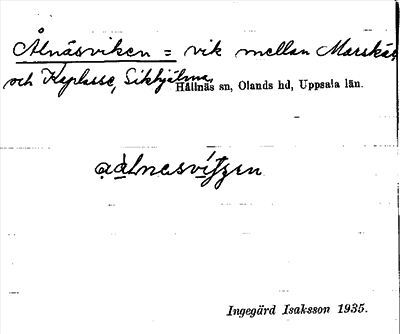 Ålnäsviken = vik mellan Marskär
och Keplasse, Sikhjälma
Hållnäs sn, Olands hd, Uppsala län.
Ingegärd Isaksson 1935.